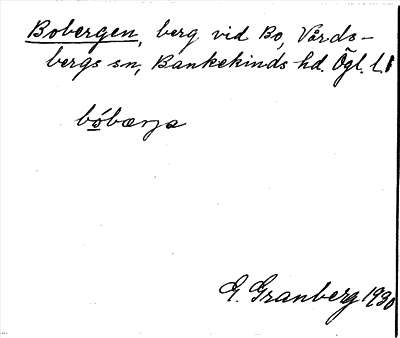 Bobergen, berg vid Bo, Vårds-
bergs sn, Bankekinds hd. Ögl. L.
bóbærja
G. Granberg 1930